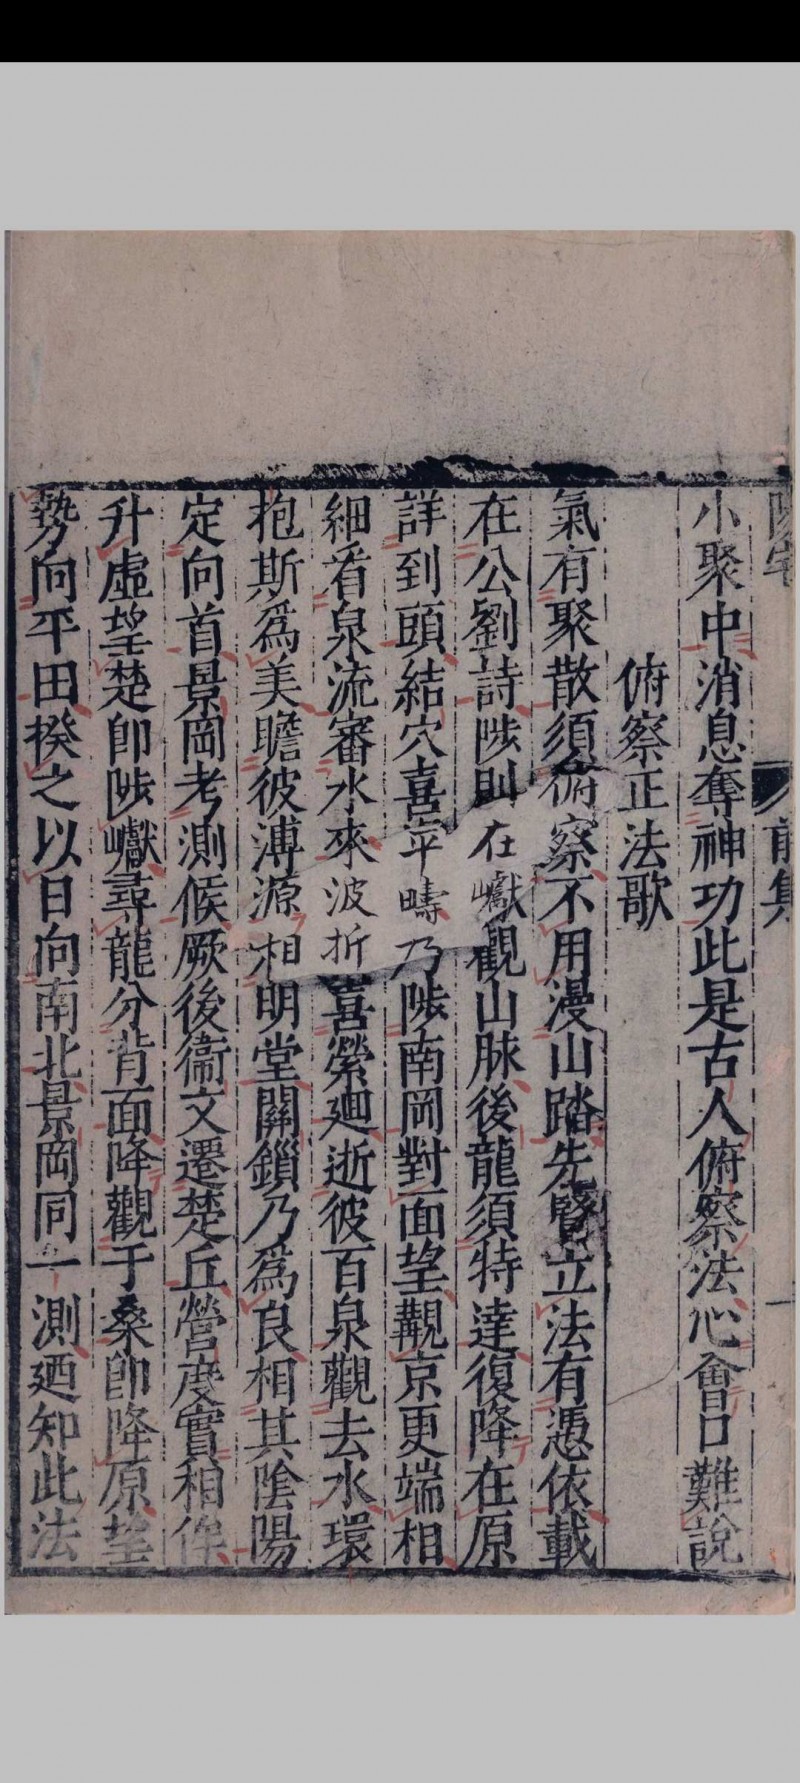 小聚中消息奪神功此是古人俯察法心會口難說
俯察正法歌
氣有聚散須俯察不用漫山踏先賢立法有憑依載
在公劉詩陟則在巘觀山脉後龍須特達復降在原
詳到頭結穴喜平疇乃陟南岡對面望觀京更端相
細看泉流審水來波折喜縈廻逝彼百泉觀去水環
抱斯爲美瞻彼溥源相明堂關鎖乃爲良相其陰陽
定向首景岡考測候厥後衞文遷楚丘營度實相侔
升虛望楚卽陟巘尋龍分背面降觀于桑卽降原望
勢向平田揆之以日向南北景岡同一測廼知此法
前集